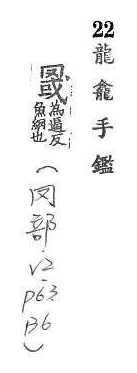 22 龍龕手鑑
罭
為逼反
魚網也
(罓部·V2·P63·B6)